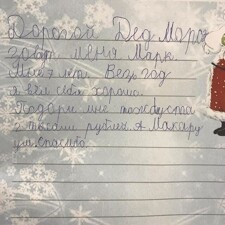 Дорогой Дед Мороз
зовут меня Марк.
Мне 7 лет. Весь год
я вёл себя хорошо.
Подари мне пожалуста
2 тысячи рублей. А Макару
ум. Спасибо.